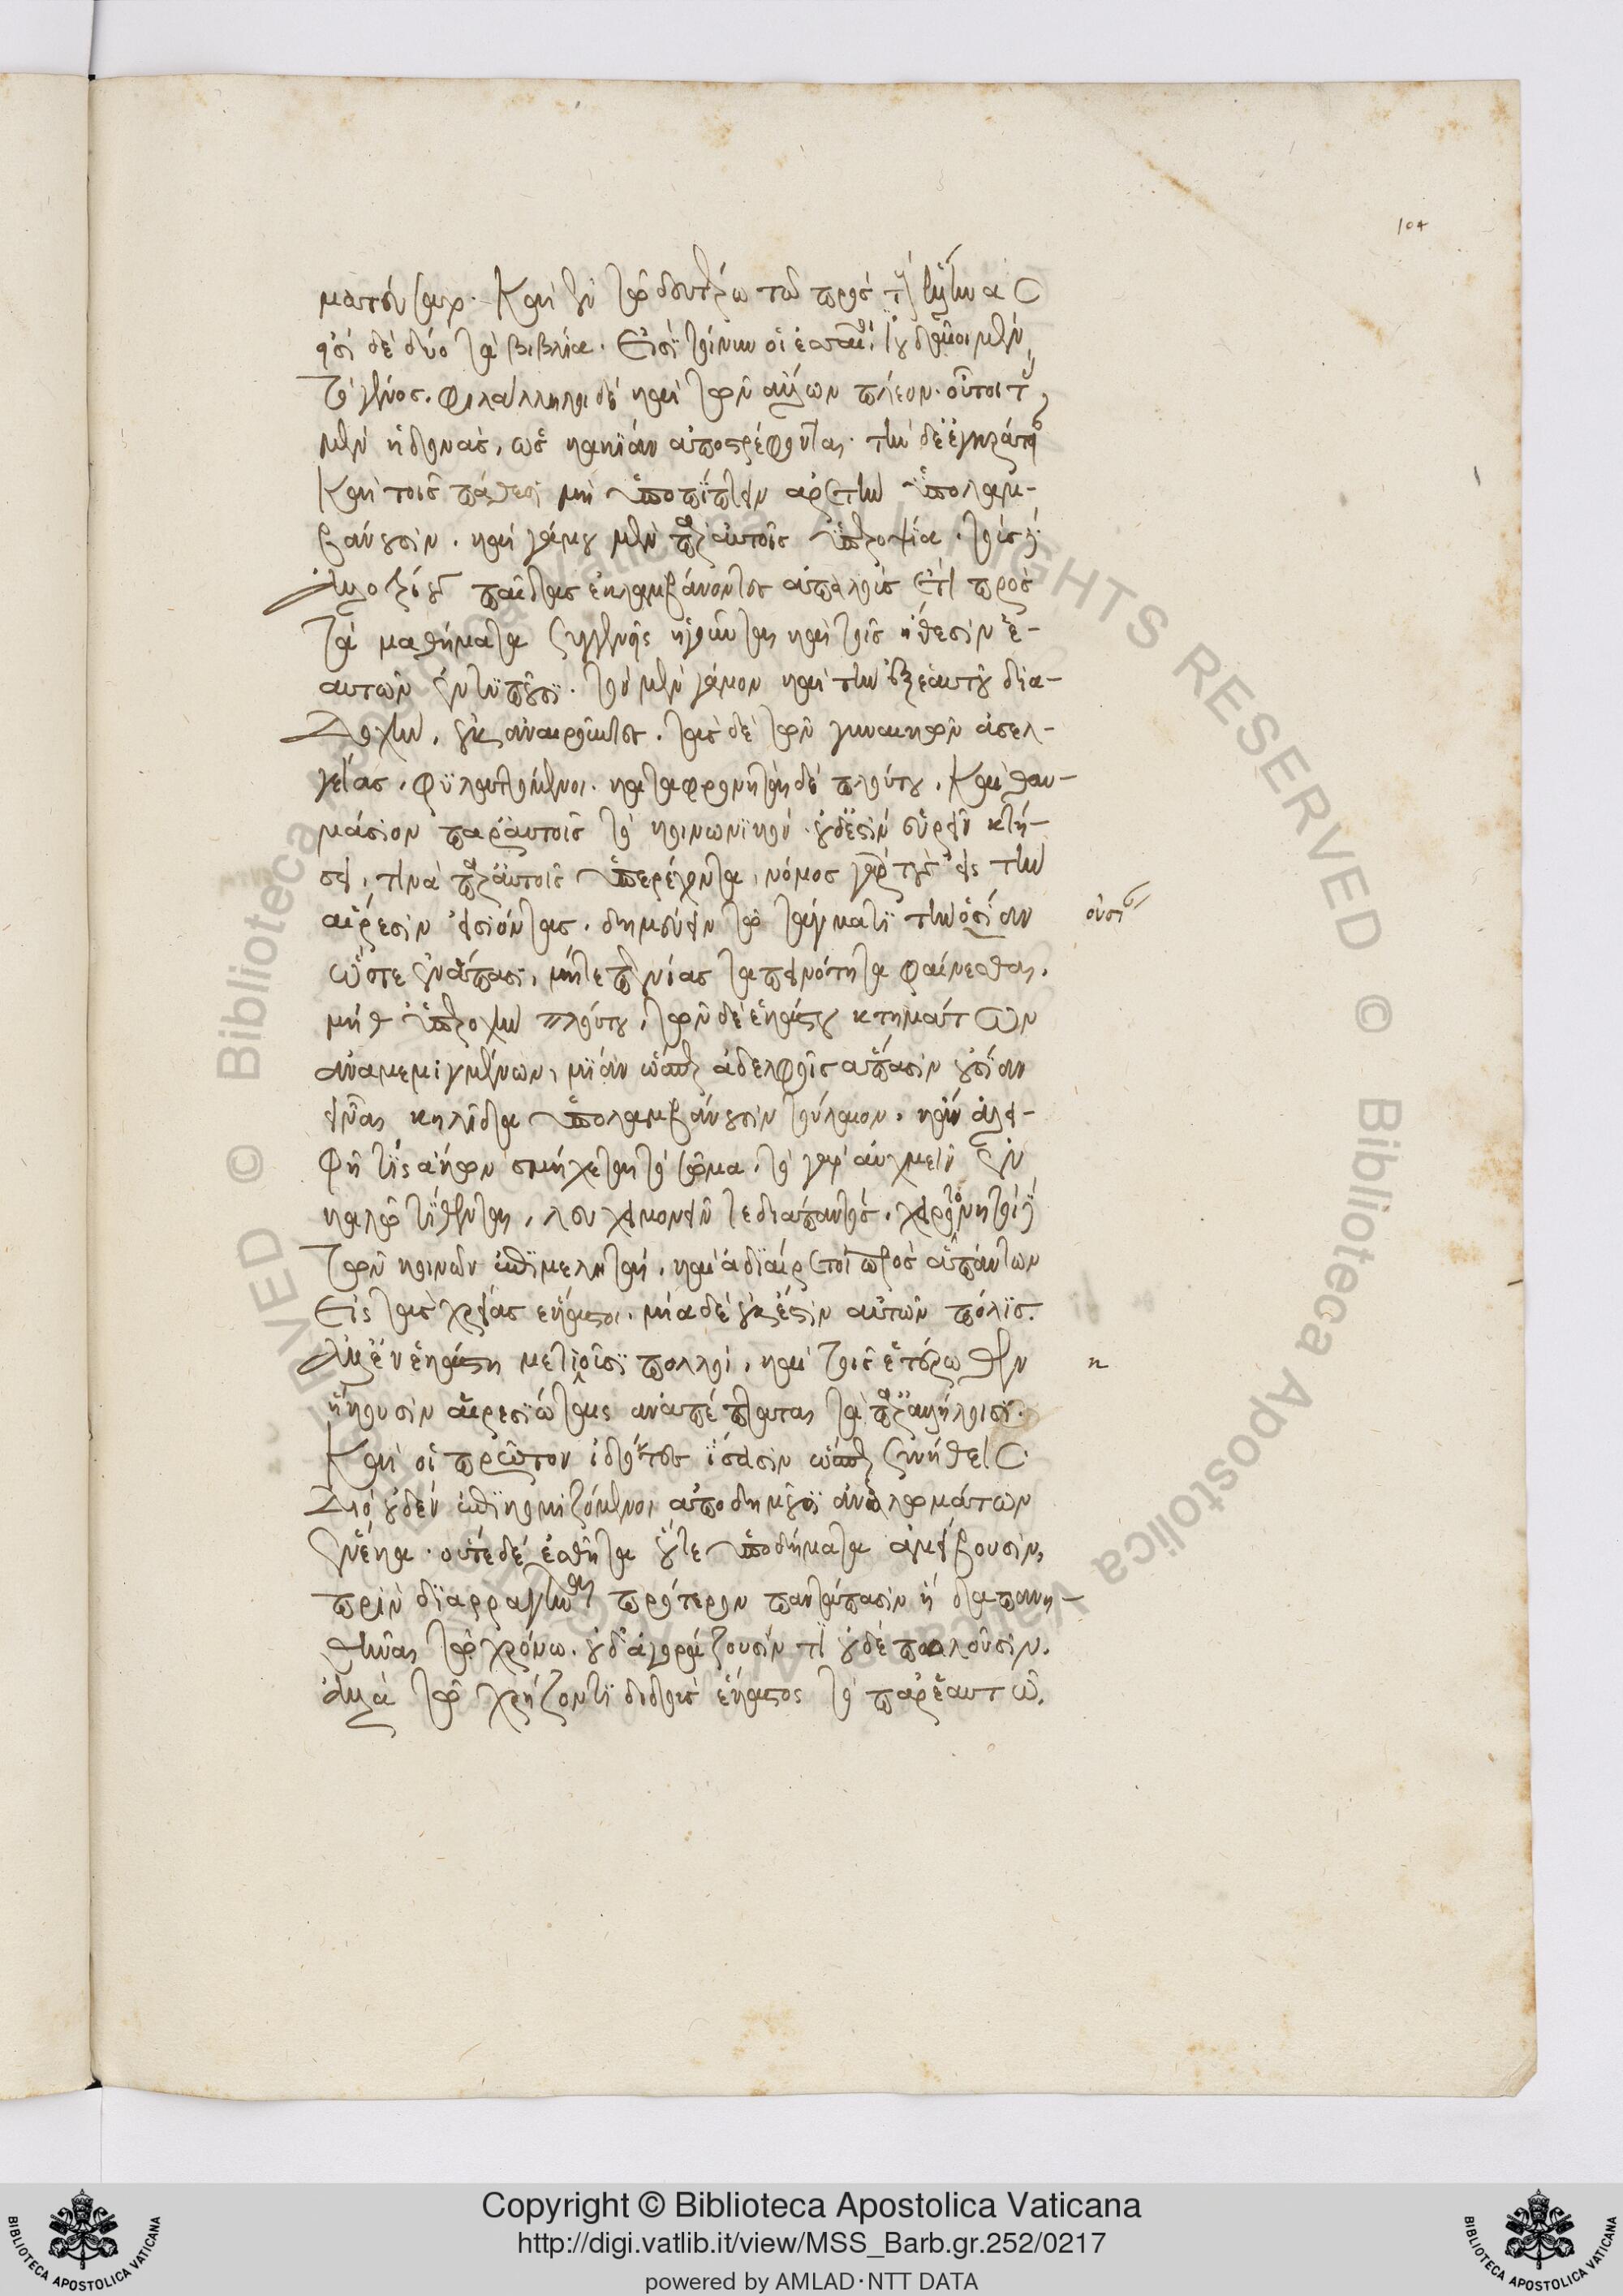 104
ματεύσατο. Καὶ ἐν τῷ δευτέρῳ τῶν πρὸς τοὺς Ἕλληνας
εἰσὶ δὲ δύο τὰ βιβλία. Εἰσὶ τοίνυν οἱ ἐσσαῖοι, ἰουδαῖοι μὲν
τὸ γένος. φιλάλληλοι δὲ καὶ τῶν ἄλλων πλέον. οὗτοι τὰς
μὲν ἡδονὰς, ὡς κακίαν ἀποστρέφονται. τὴν δὲ ἐγκράτειαν
Καὶ τοῖς πάθεσι μὴ ὑποπίπτειν ἀρετὴν ὑπολαμ-
βάνουσιν. καὶ γάμου μὲν παρ' αὐτοῖς ὑπεροψία. τοὺς δ'
ἀλλοτρίους παῖδας ἐκλαμβάνοντες ἁπαλοὺς ἔτι πρὸς
τὰ μαθήματα συγγενεῖς ἡγοῦνται καὶ τοῖς ἤθεσιν ἑ-
αυτῶν ἐντυποῦσι. τὸν μὲν γάμον καὶ τὴν ἐξ αὐτοῦ δια-
δοχὴν, οὐκ ἀναιροῦντες. τὰς δὲ τῶν γυναικῶν ἀσελ-
γείας, φυλαττόμενοι. καταφρονηταὶ δὲ πλούτου. Καὶ θαυ-
μάσιον παρ' αὐτοῖς τὸ κοινωνικόν. οὐδέ ἐστιν εὑρεῖν κτή-
σει, τινὰ παρ' αὐτοῖς ὑπερέχοντα. νόμος γὰρ τοὺς εἰς τὴν
αἵρεσιν εἰσιόντας. δημεύειν τῷ τάγματι τὴν οὐσίαν
οὐσι
ὥστε ἐν ἅπασι, μήτε πενίας ταπεινότητα φαίνεσθαι.
μήθ' ὑπεροχὴν πλούτου. τῶν δὲ ἑκάστου κτημάτων
ἀναμεμιγμένων, μίαν ὥσπερ ἀδελφοῖς ἅπασιν οὐσίαν
εἶναι κηλῖδα ὑπολαμβάνουσιν τοὔλαιον. κἂν ἀλει-
φῇ τις ἄκων σμήχεται τὸ σῶμα. τὸ γὰρ αὐχμεῖν ἐν
καλῷ τίθενται. λευχειμονεῖν τε διαπαντός. χειροτονητοὶ δ'
τῶν κοινῶν ἐπιμεληταὶ. καὶ ἀδιαίρετοι πρὸς ἁπάντων
Εἰς τὰς χρείας ἕκαστοι. μία δὲ οὐκ ἔστιν αὐτῶν πόλις.
ἀλλ' ἐν ἑκάστῃ μετοικοῦσι πολλοί. καὶ τοῖς ἑτέρωθεν
κ
ἥκουσιν αἱρεσιώταις ἀναπέπταται τὰ παρ' ἀλλήλοις.
Καὶ οἳ πρῶτον ἰδόντες ἴσασιν ὥσπερ συνήθεις.
διὸ οὐδὲν ἐπικομιζόμενοι ἀποδημοῦσι ἀναλωμάτων
ἕνεκα. οὔτε δὲ ἐσθῆτα οὔτε ὑποδήματα ἀμείβουσιν,
πρὶν διαρραγῆναι πρότερον παντάπασιν ἢ δαπανη-
θῆναι τῷ χρόνῳ. οὐδ' ἀγοράζουσίν τι οὐδὲ πωλοῦσιν.
ἀλλὰ τῷ χρῄζοντι διδοὺς ἕκαστος τὸ παρ' ἑαυτῷ.
Copyright © Biblioteca Apostolica Vaticana
http://digi.vatlib.it/view/MSS_Barb.gr.252/0217
powered by AMLAD·NTT DATA